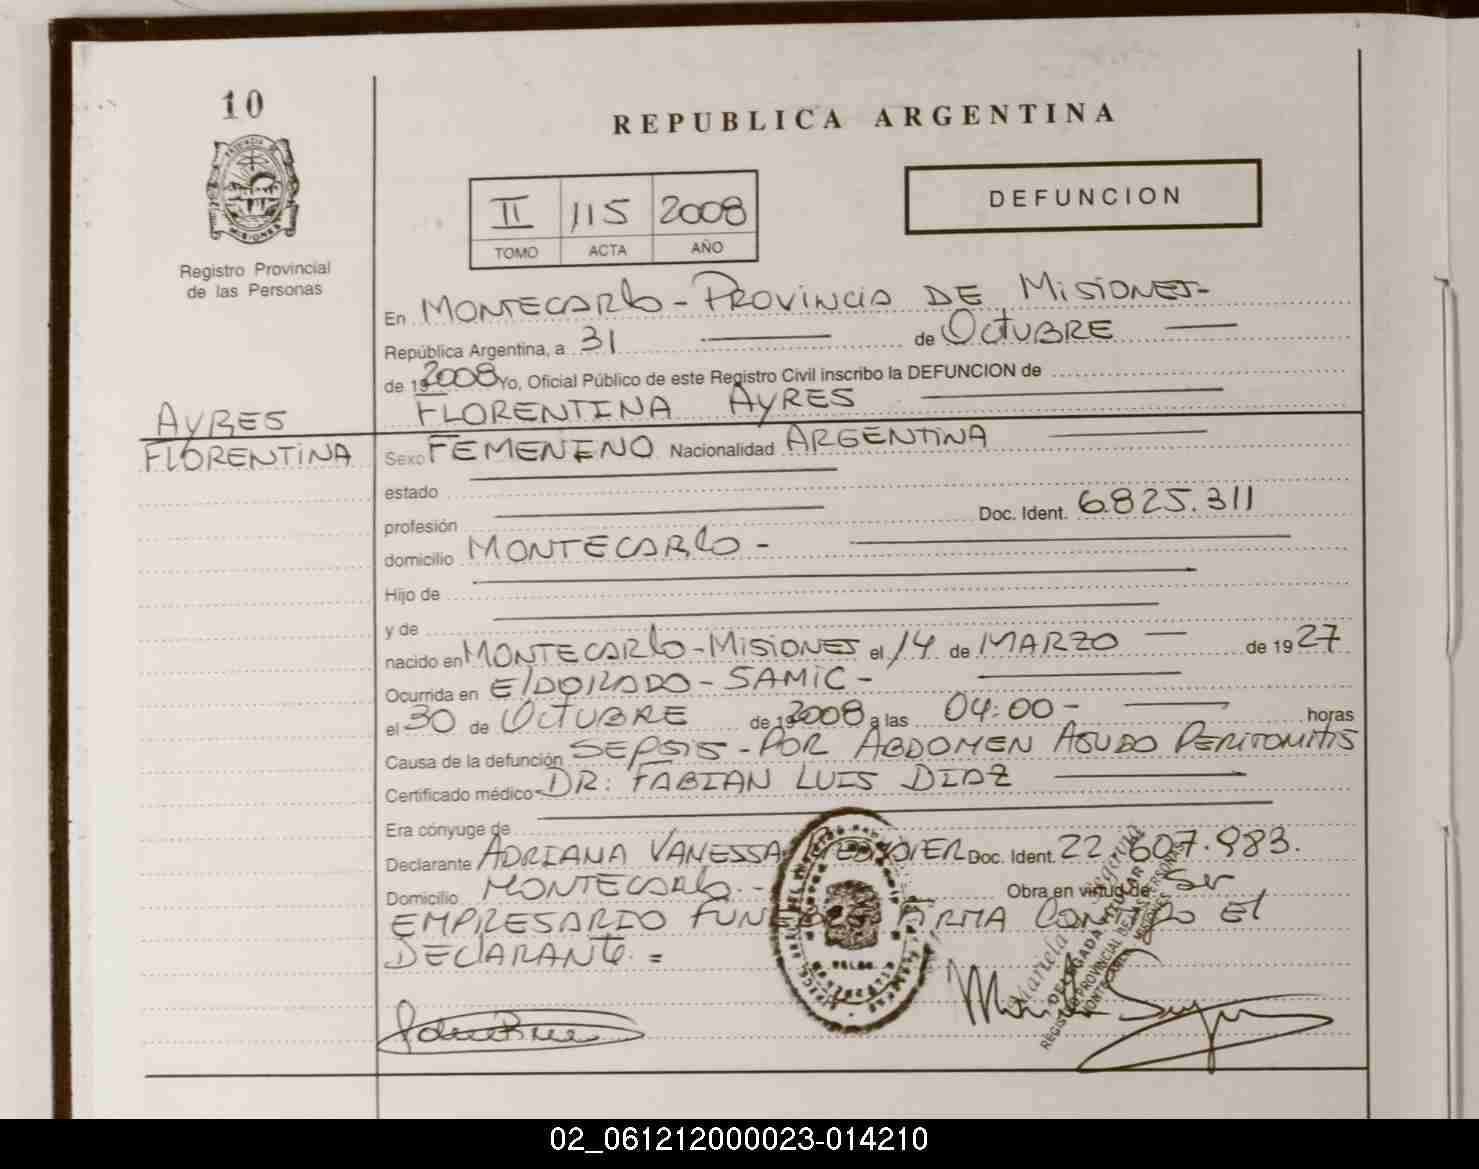 10
REPUBLICA ARGENTINA
DEFUNCION
II 115 2008
TOMO ACTA AÑO
MISIONES
Registro Provincial
de las Personas
En MONTECARLO - PROVINCIA DE MISIONES-
República Argentina, a 31 de OCTUBRE
de 19 2008 Yo, Oficial Público de este Registro Civil inscribo la DEFUNCION de
FLORENTINA AYRES
AYRES
FLORENTINA
Sexo FEMENINO Nacionalidad ARGENTINA
estado
profesión Doc. Ident. 6.825.311
domicilio MONTECARLO -
Hijo de
y de
nacido en MONTECARLO - MISIONES el 14 de MARZO de 1927
Ocurrida en ElDORADO - SAMIC -
el 30 de OCTUBRE de 19 2008 a las 04:00 - horas
Causa de la defunción SEPSIS - POR ABDOMEN AGUDO PERITONITIS
Certificado médico DR: FABIAN LUIS DIAZ
Era cónyuge de
Declarante ADRIANA VANESSA Doc. Ident. 22.607.983.
Domicilio MONTECARLO. - Obra en virtud de Ser
EMPRESARIO FIRMA El
DECLARANTE. =
DELEGADA TITULAR
REGISTRO PROVINCIAL DE LAS PERSONAS
MISIONES
02_061212000023-014210